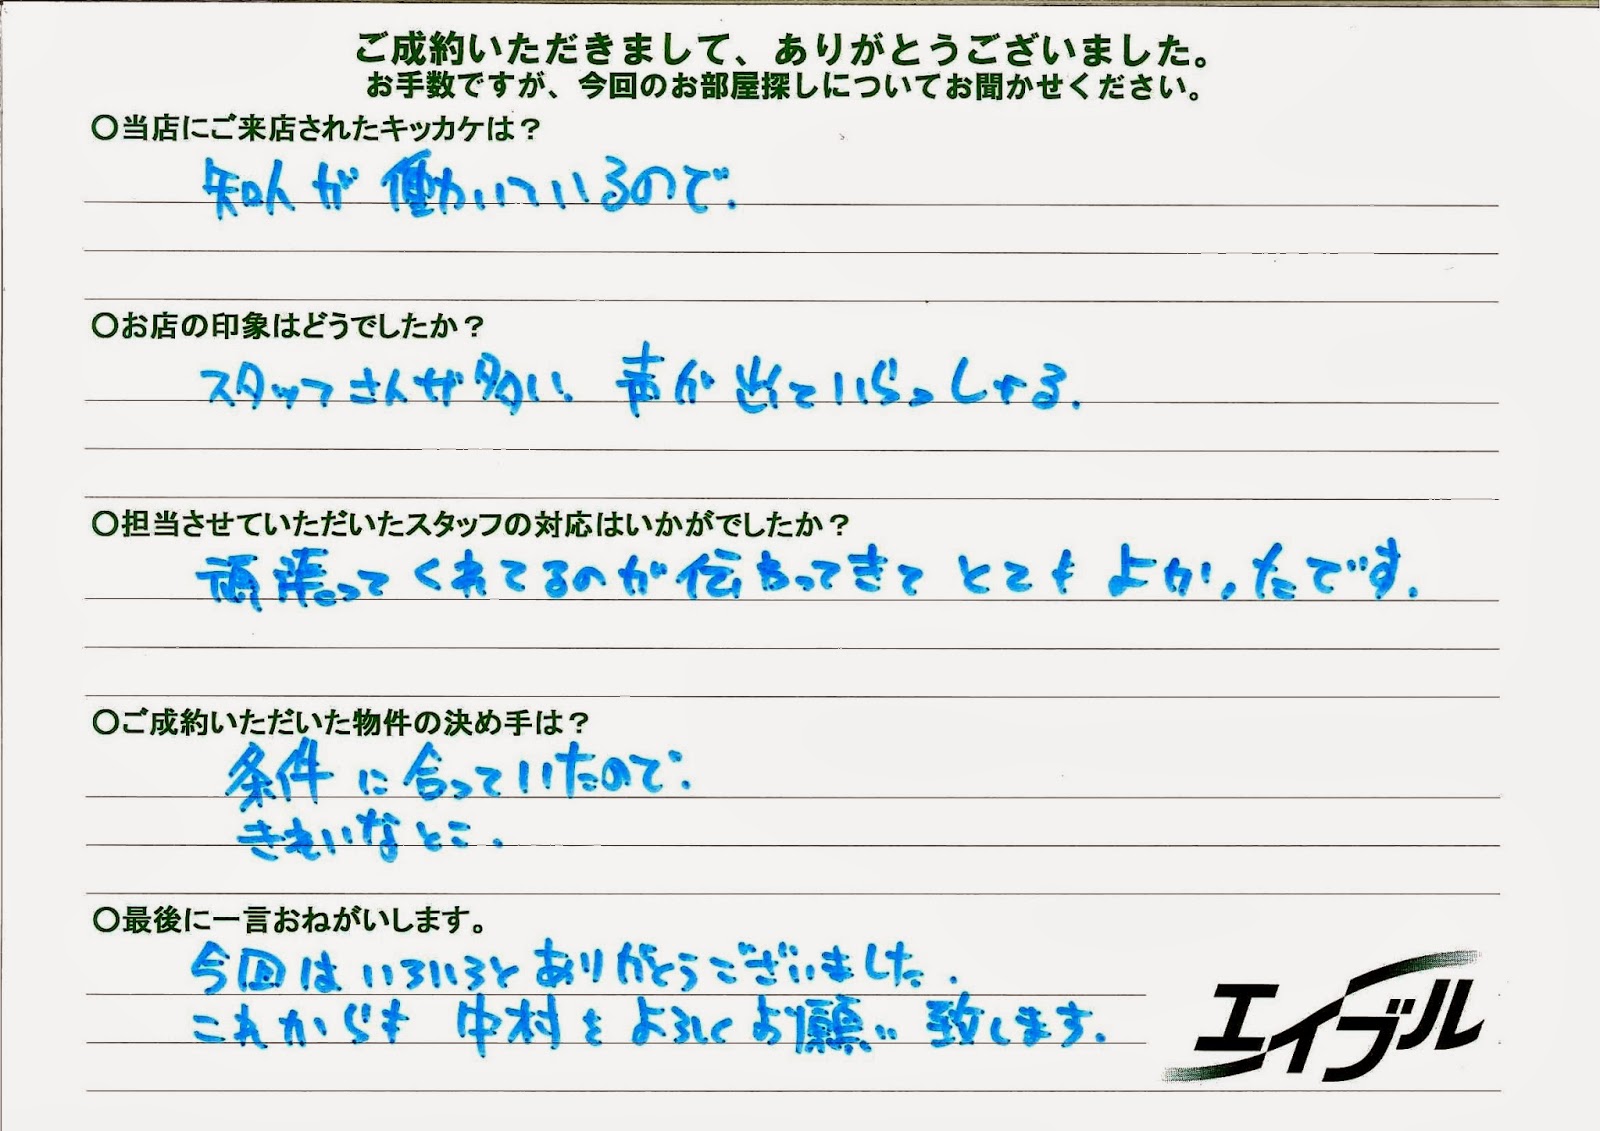 ご成約いただきまして、ありがとうございました。
お手数ですが、今回のお部屋探しについてお聞かせください。
〇当店にご来店されたキッカケは？
知人が働いているので.
〇お店の印象はどうでしたか？
スタッフさんが多い、声が出ていらっしゃる.
〇担当させていただいたスタッフの対応はいかがでしたか？
頑張ってくれてるのが伝わってきてとてもよかったです.
〇ご成約いただいた物件の決め手は？
条件に合っていたので.
きれいなとこ.
〇最後に一言おねがいします。
今回はいろいろとありがとうございました.
これからも中村をよろしくお願い致します.
エイブル